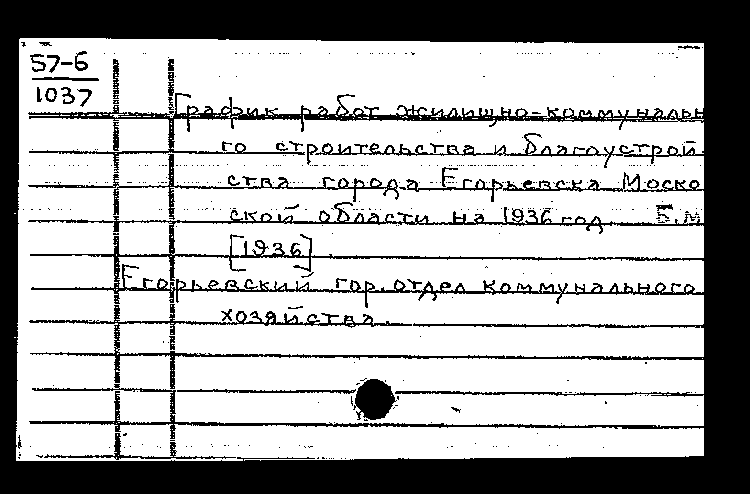 57-6
1037
График работ жилищно-коммунальн
го строительства и благоустрой
ства города Егорьевска Моско
ской области на 1936 год Б.м
[1936].
Егорьевский гор. отдел коммунального
хозяйства.